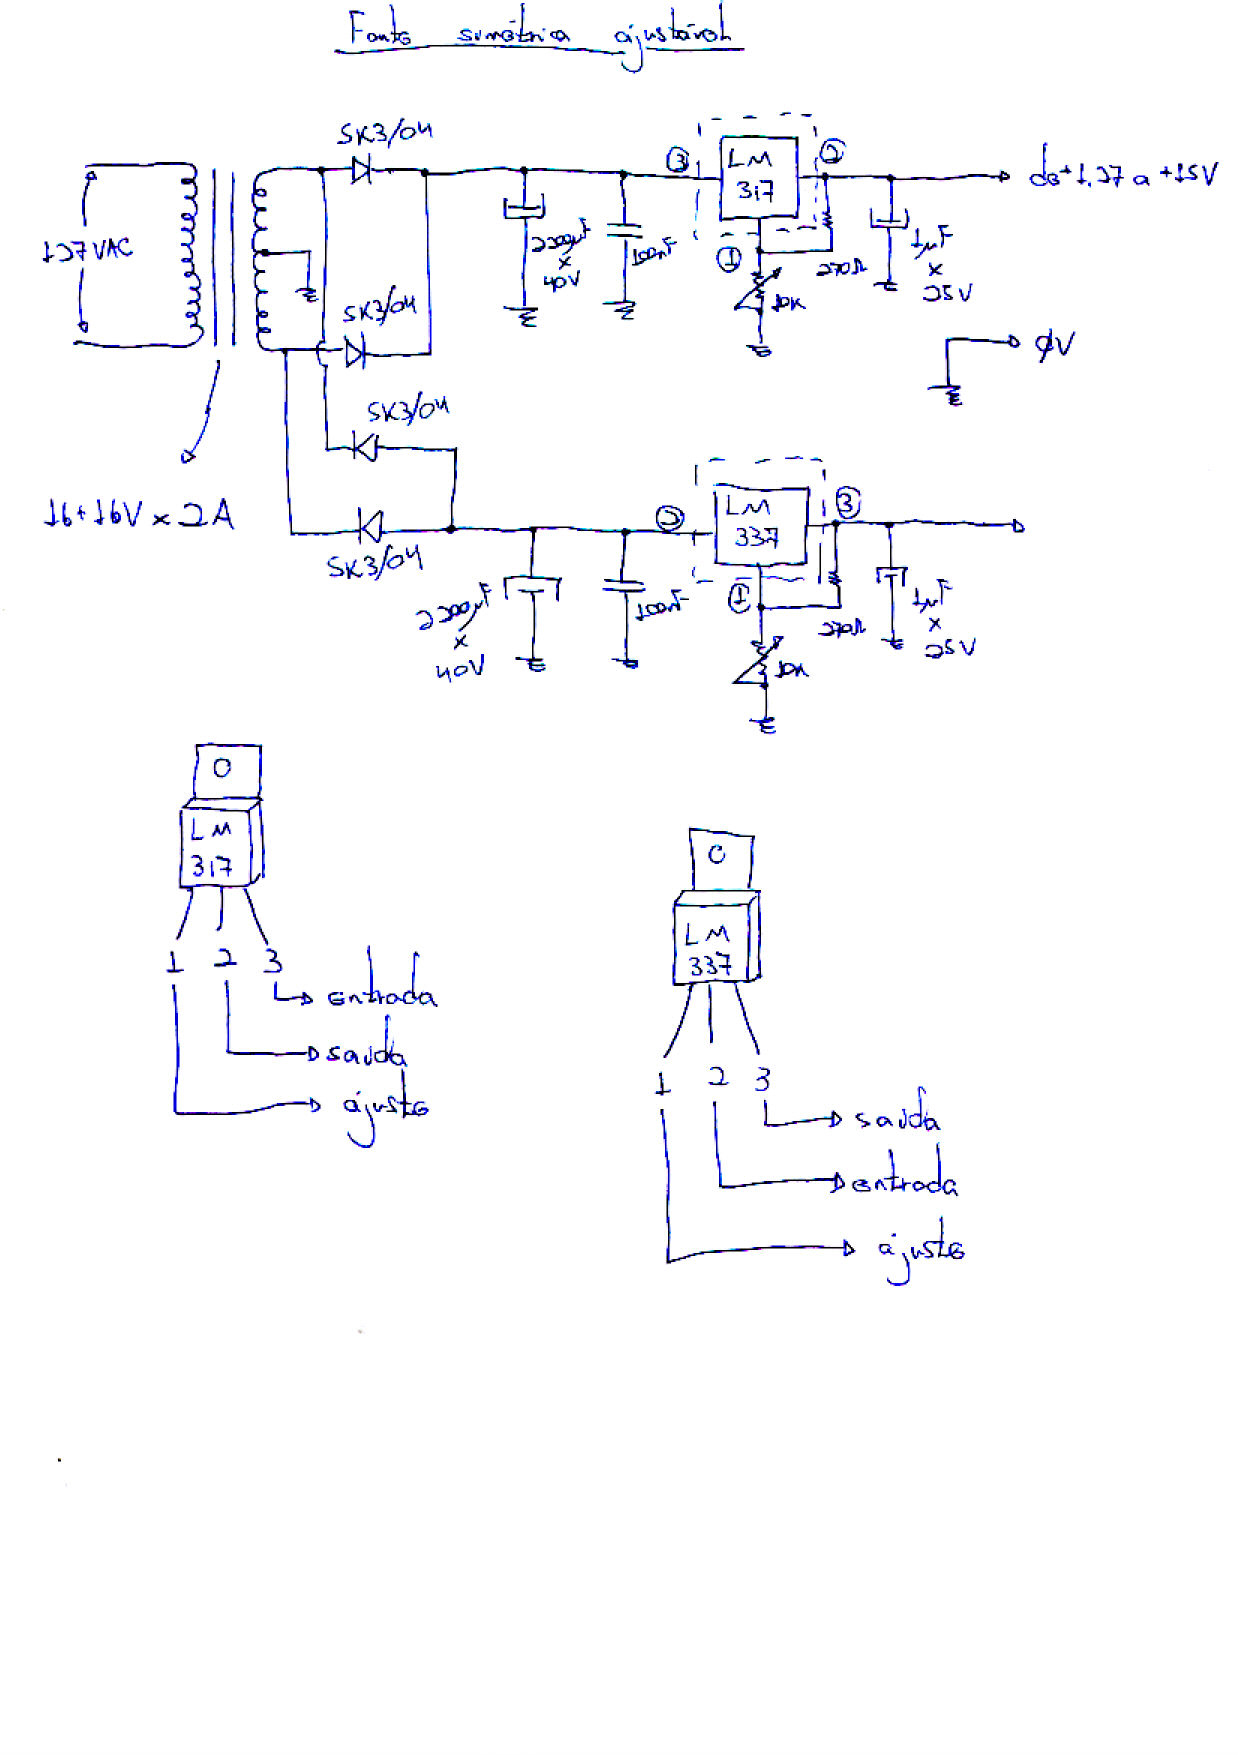 Fonte simétrica ajustável
SK3/04
③ LM 317 ②
de +1,27 a +15V
127 VAC
2200µF x 40V
100nF
①
270Ω
1µF x 25V
10K
SK3/04
ØV
SK3/04
16+16V x 2A
② LM 337 ③
SK3/04
2200µF x 40V
100nF
①
270Ω
1µF x 25V
10K
LM 317
1 2 3
entrada
saída
ajuste
LM 337
1 2 3
saída
entrada
ajuste